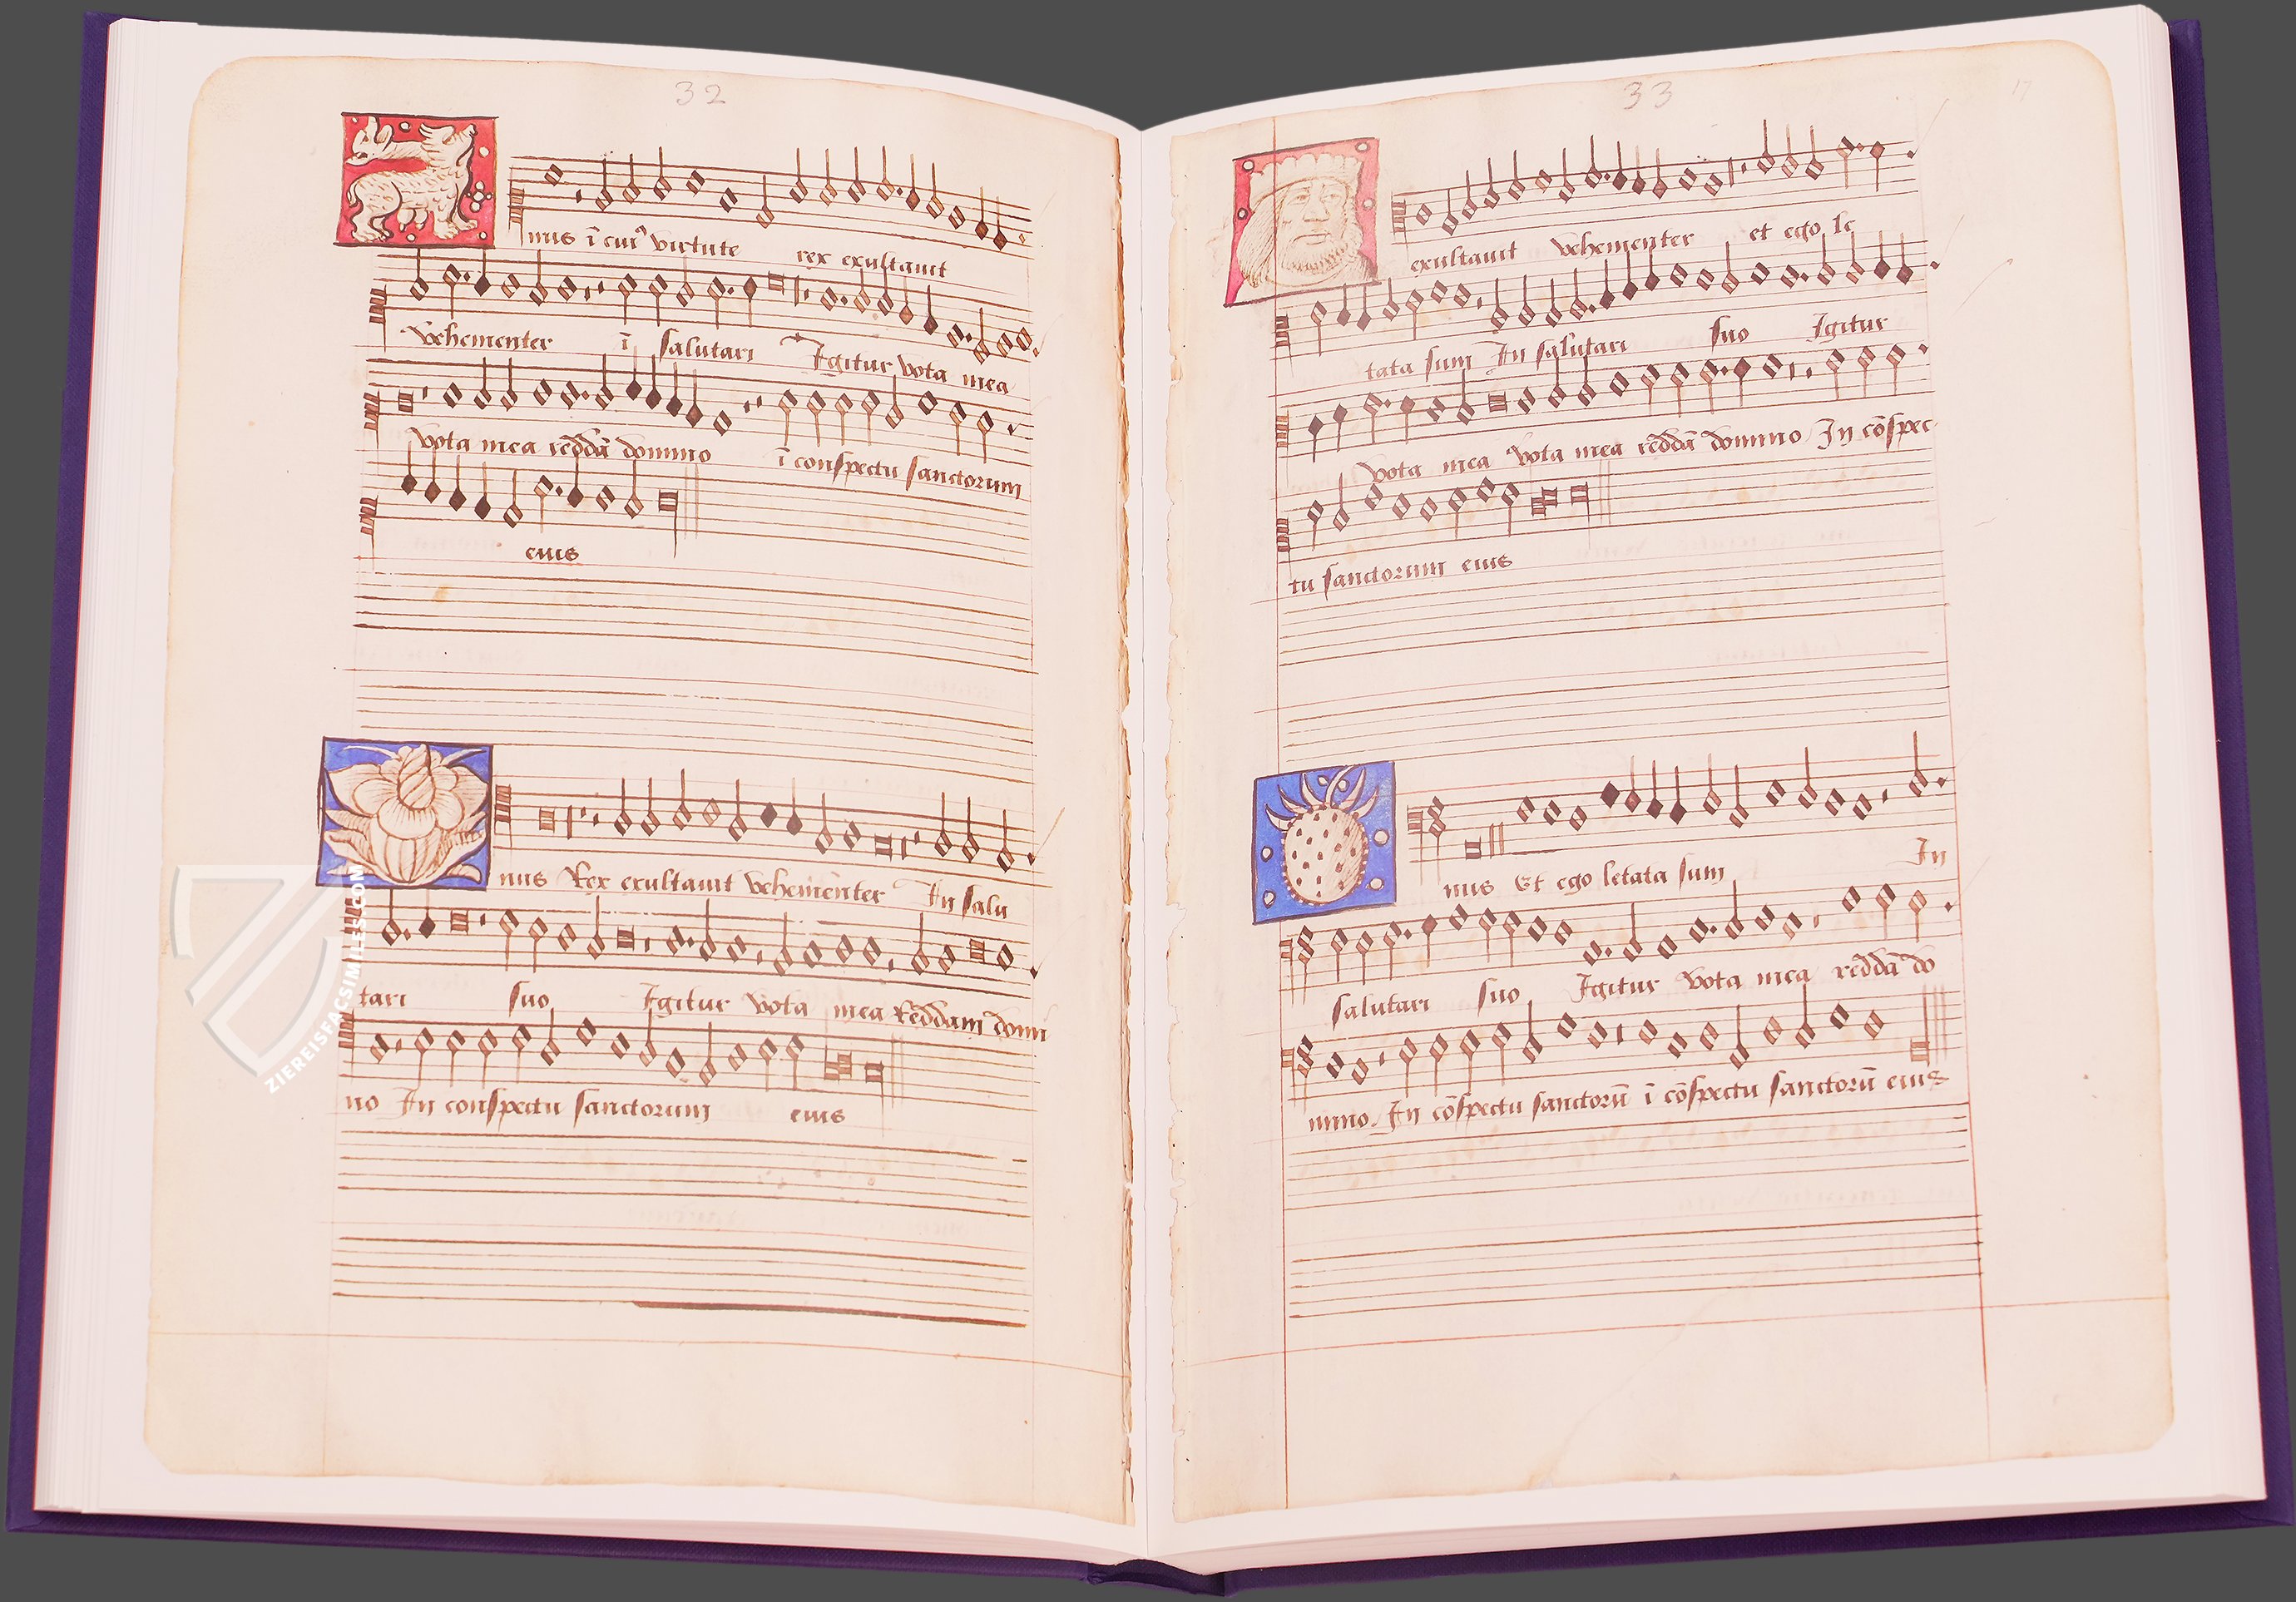 32
nus ī cuiꝰ virtute rex exultauit
vehementer ī salutari Igitur vota mea
vota mea reddā domino ī conspectu sanctorum
eius
nus Rex exultauit vehementer In salu
tari suo Igitur vota mea Reddam domi
no In conspectu sanctorum eius
ZIEREISFACSIMILES.COM
33
17
exultauit vehementer et ego le
tata sum In salutari suo Igitur
vota mea vota mea reddā domino In cōspec
tu sanctorum eius
nus Et ego letata sum In
salutari suo Igitur vota mea reddā do
mino In cōspectu sanctorū ī cōspectu sanctorū eius